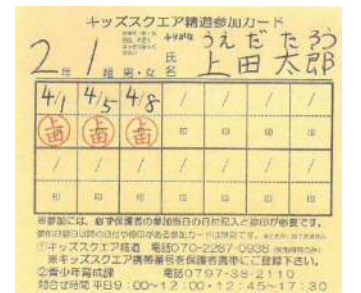 キッズスクエア精道参加カード
ふりがな うえだ たろう
2年 1組 男・女 氏名 上田 太郎
4/1 4/5 4/8 / / / /
上田 上田 上田 印 印 印 印
/ / / / / / /
印 印 印 印 印 印 印
※参加には、必ず保護者の参加当日の日付記入と捺印が必要です。
①キッズスクエア精道 電話070-2287-0938
※キッズスクエア携帯番号を保護者携帯にご登録下さい。
②青少年育成課 電話0797-38-2110
問合せ時間 平日9:00~12:00・12:45~17:30